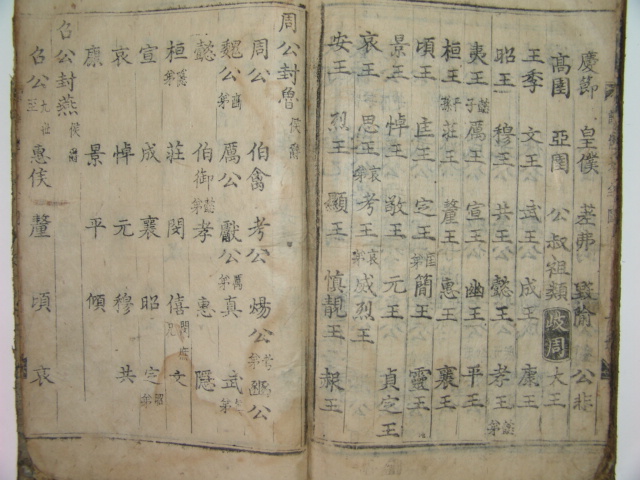 慶節 皇僕 差弗 毁隃 公非
高圉 亞圉 公叔祖類 岐周 大王
王季 文王 武王 成王 康王
昭王 穆王 共王 懿王 孝王 懿弟
夷王 懿子 厲王 宣王 幽王 平王
桓王 平孫 莊王 釐王 惠王 襄王
頃王 匡王 定王 匡弟 簡王 靈王
景王 悼王 敬王 元王 貞定王
哀王 思王 哀弟 考王 哀弟 威烈王
安王 烈王 顯王 慎靚王 赧王
周公封魯 侯爵
周公 伯禽 考公 煬公 考弟 幽公
魏公 幽弟 厲公 獻公 厲弟 真 武 弟
懿 伯御 懿 孝 惠 隱
桓 隱弟 莊 閔 僖 閔兄 文
宣 成 襄 昭 定 昭弟
哀 悼 元 穆 共
康 景 平 傾
召公封燕 侯爵
召公 九世至 惠侯 釐 頃 哀